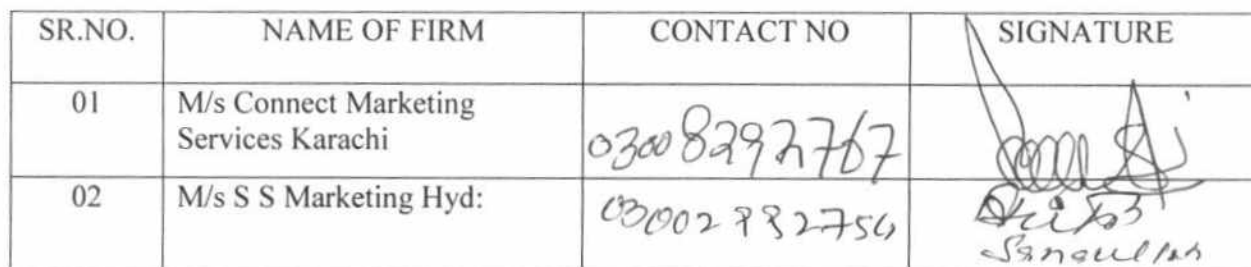 SR.NO. NAME OF FIRM CONTACT NO SIGNATURE
01 M/s Connect Marketing
Services Karachi 03008292767
02 M/s S S Marketing Hyd:
Sanaullah